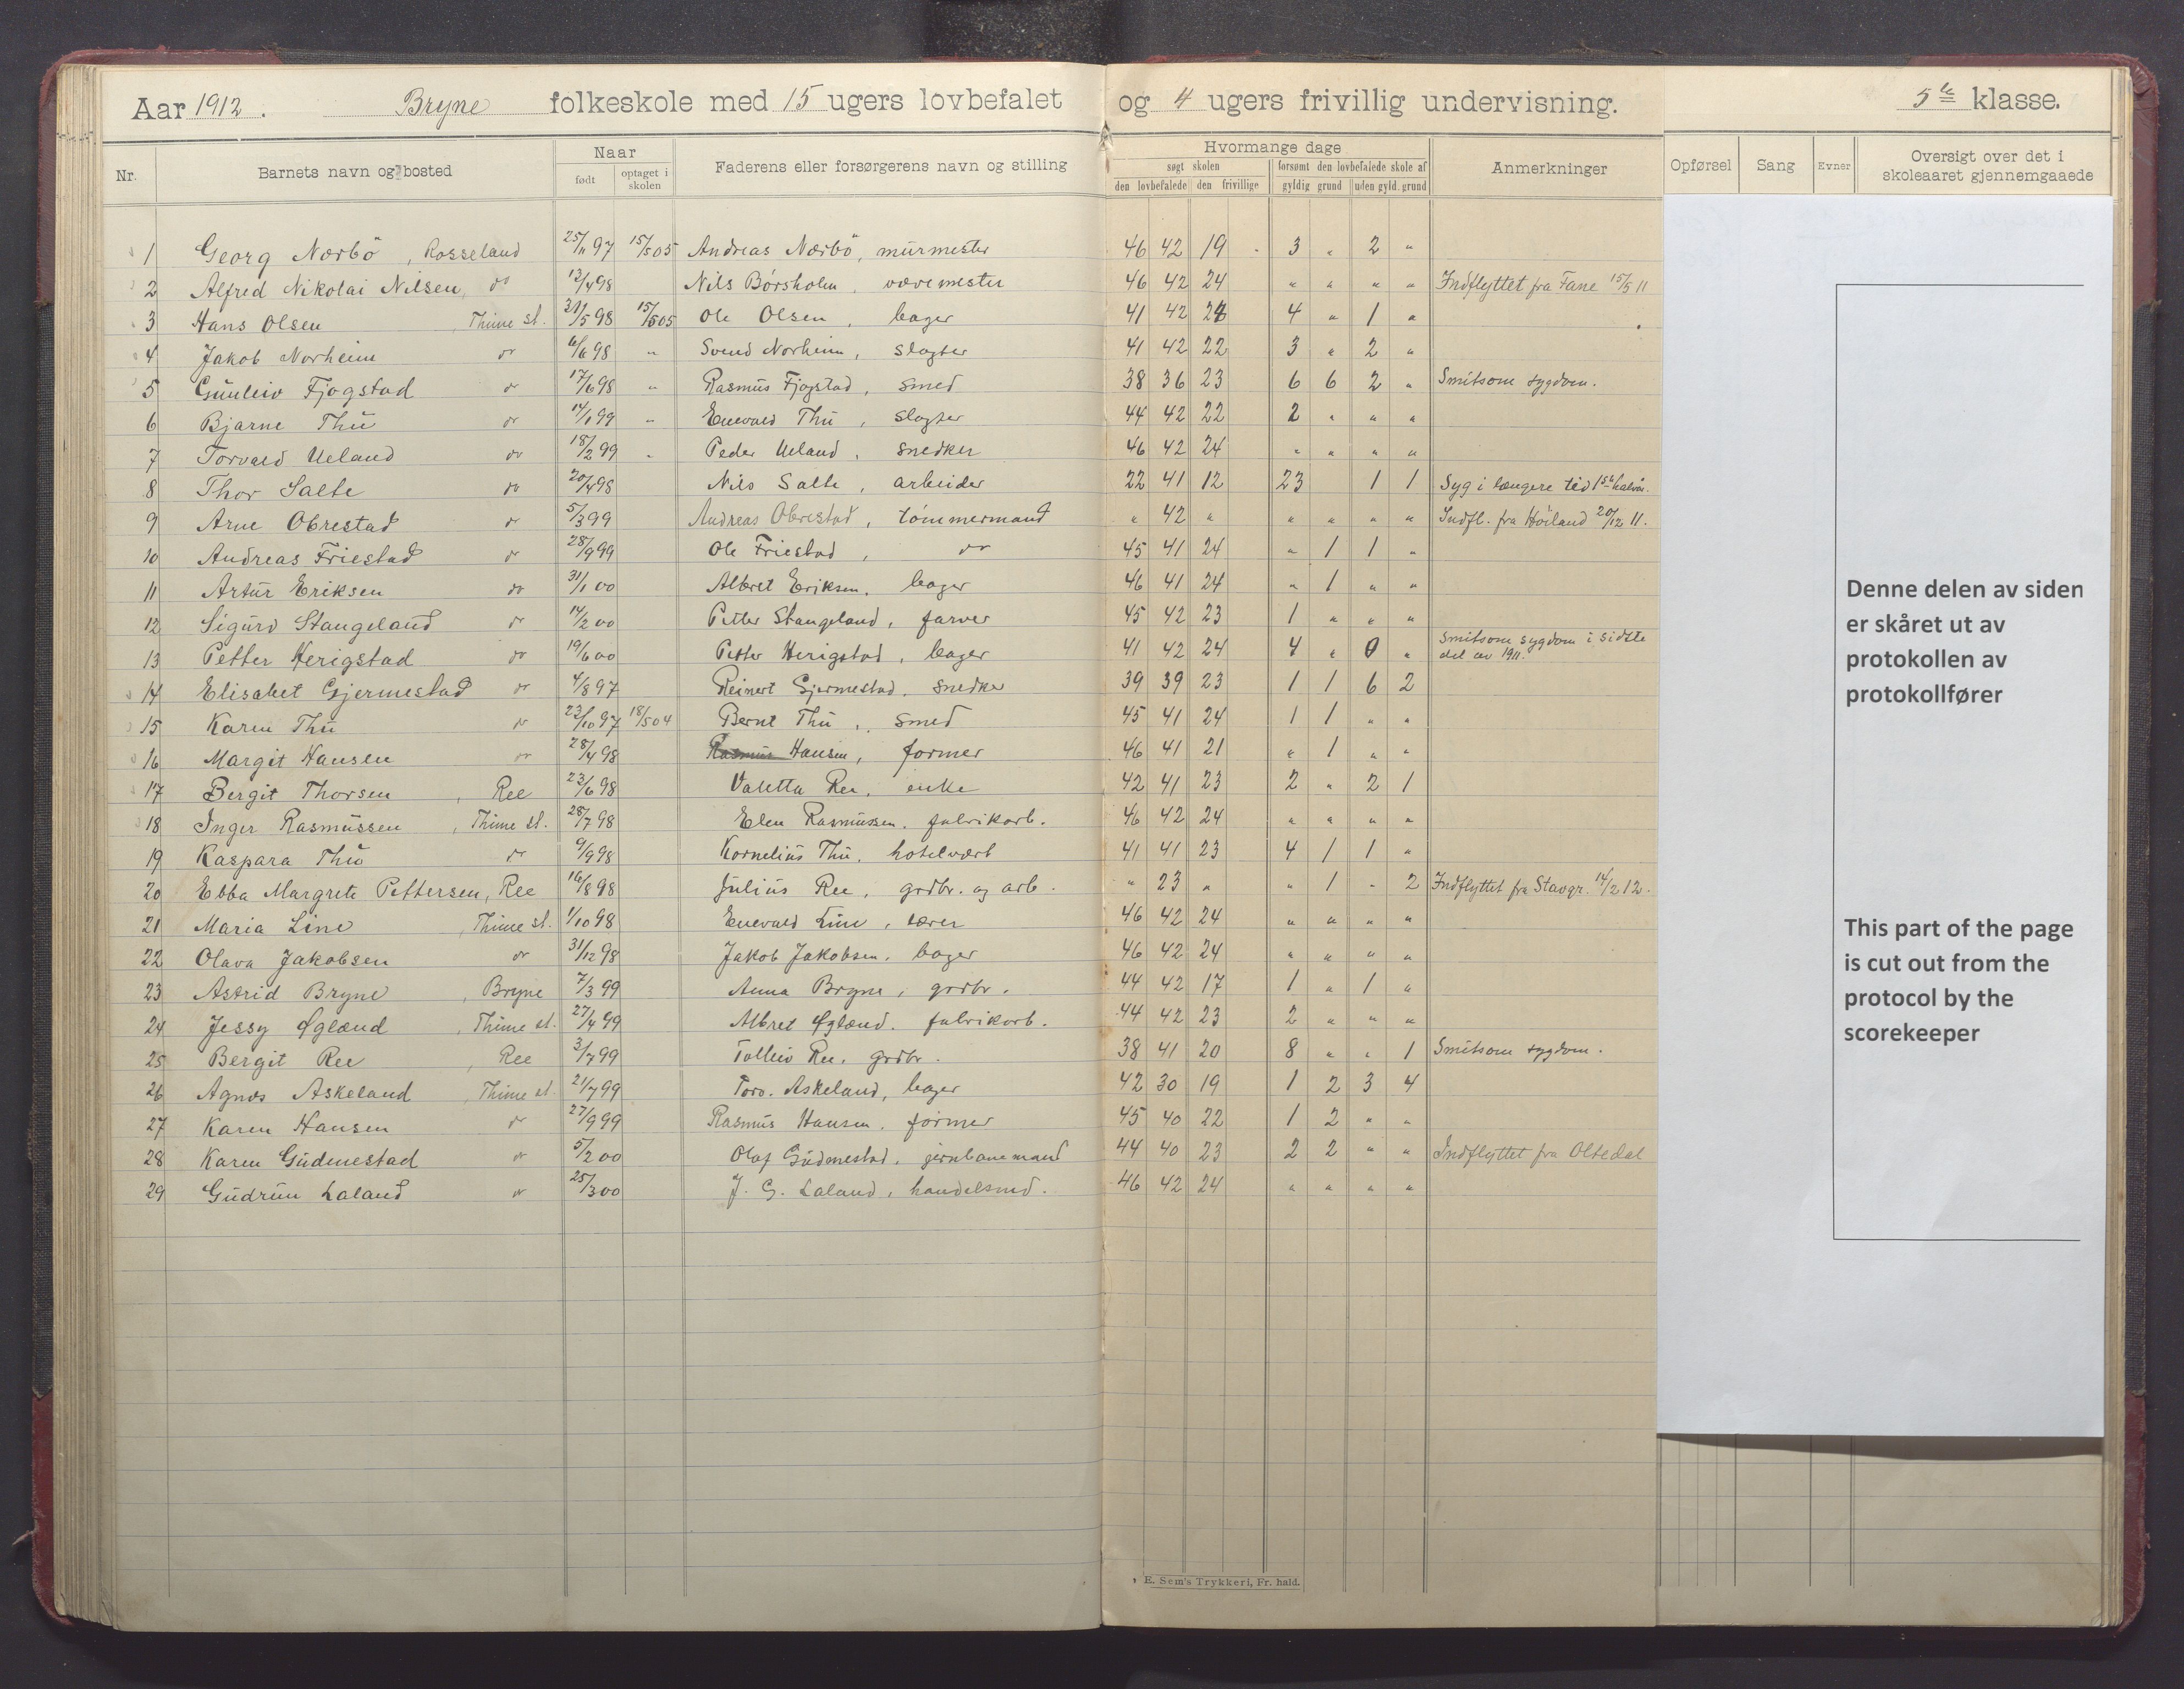 Aar 1912. Bryne folkeskole med 15 ugers lovbefalet og 4 ugers frivillig undervisning. 5te klasse.
Nr. Barnets navn og bosted Naar født optaget i skolen Faderens eller forsørgerens navn og stilling Hvormange dage søgt skolen den lovbefalede den frivillige forsømt den lovbefalede skole af gyldig grund uden gyld. grund Anmerkninger Opførsel Sang Evner Oversigt over det i skoleaaret gjennemgaaede
1 Georg Nærbö, Rosseland 25/11 97 15/5 05 Andreas Nærbö, murmester 46 42 19 - 3 „ 2 „
2 Alfred Nikolai Nilsen, do 13/4 98 Nils Börsholm, vævemester 46 42 24 „ „ „ „ Indflyttet fra Fane 15/5 11
3 Hans Olsen, Thime st. 31/5 98 15/5 05 Ole Olsen, bager 41 42 24 4 „ 1 „
4 Jakob Norheim do 6/6 98 „ Svend Norheim, slagter 41 42 22 3 „ 2 „
5 Gunleiv Fjogstad do 17/6 98 „ Rasmus Fjogstad, smed 38 36 23 6 6 2 „ Smitsom sygdom.
6 Bjarne Thu do 14/1 99 „ Enevald Thu, slagter 44 42 22 2 „ „ „
7 Torvald Ueland do 18/2 99 „ Peder Ueland, snedker 46 42 24 „ „ „ „
8 Thor Salte do 20/4 98 Nils Salte, arbeider 22 41 12 23 1 1 Syg i længere tid 1ste halvår.
9 Arne Obrestad do 5/3 99 Andreas Obrestad, tömmermand „ 42 „ „ „ „ „ Indfl. fra Höiland 20/12 11.
10 Andreas Friestad do 28/9 99 Ole Friestad, do 45 41 24 „ 1 1 „
11 Artur Eriksen do 31/1 00 Albret Eriksen, bager 46 41 24 „ 1 „ „
12 Sigurd Stangeland do 14/2 00 Petter Stangeland, farver 45 42 23 1 „ „ „
13 Petter Herigstad do 19/6 00 Petter Herigstad, bager 41 42 24 4 „ 0 „ Smitsom sygdom i sidste del av 1911.
14 Elisabet Gjermestad do 4/8 97 Reinert Gjermestad, snedker 39 39 23 1 1 6 2
15 Karen Thu do 23/10 97 18/5 04 Bernt Thu, smed 45 41 24 1 1 „ „
16 Margit Hansen do 28/4 98 Rasmus Hansen, former 46 41 21 „ 1 „ „
17 Bergit Thorsen, Ree 23/6 98 Valetta Ree, enke 42 41 23 2 „ 2 1
18 Inger Rasmussen, Thime st. 28/7 98 Elen Rasmussen, fabrikarb. 46 42 24 „ „ „ „
19 Kaspara Thu do 9/9 98 Kornelius Thu, hotelvært 41 41 23 4 1 1 „
20 Ebba Margrete Pettersen, Ree 16/8 98 Julius Ree, grdbr. og arb. „ 23 „ „ 1 „ 2 Indflyttet fra Stavgr. 14/2 12.
21 Maria Line, Thime st. 1/10 98 Enevald Line, lærer 46 42 24 „ „ „ „
22 Olava Jakobsen do 31/12 98 Jakob Jakobsen, bager 46 42 24 „ „ „ „
23 Astrid Bryne, Bryne 7/3 99 Anna Bryne, grdbr. 44 42 17 1 „ 1 „
24 Jessy Øglænd, Thime st. 27/4 99 Albret Øglænd, fabrikarb. 44 42 23 2 „ „ „
25 Bergit Ree, Ree 3/7 99 Tolleiv Ree, grdbr. 38 41 20 8 „ „ 1 Smitsom sygdom.
26 Agnes Askeland, Thime st. 21/7 99 Torv. Askeland, bager 42 30 19 1 2 3 4
27 Karen Hansen do 27/9 99 Rasmus Hansen, former 45 40 22 1 2 „ „
28 Karen Gudmestad do 5/2 00 Olaf Gudmestad, jernbanemand 44 40 23 2 2 „ „ Indflyttet fra Oltedal
29 Gudrun Laland do 25/3 00 J. G. Laland, handelsmd. 46 42 24 „ „ „ „
E. Sem's Trykkeri, Fr. hald.
Denne delen av siden
er skåret ut av
protokollen av
protokollfører
This part of the page
is cut out from the
protocol by the
scorekeeper